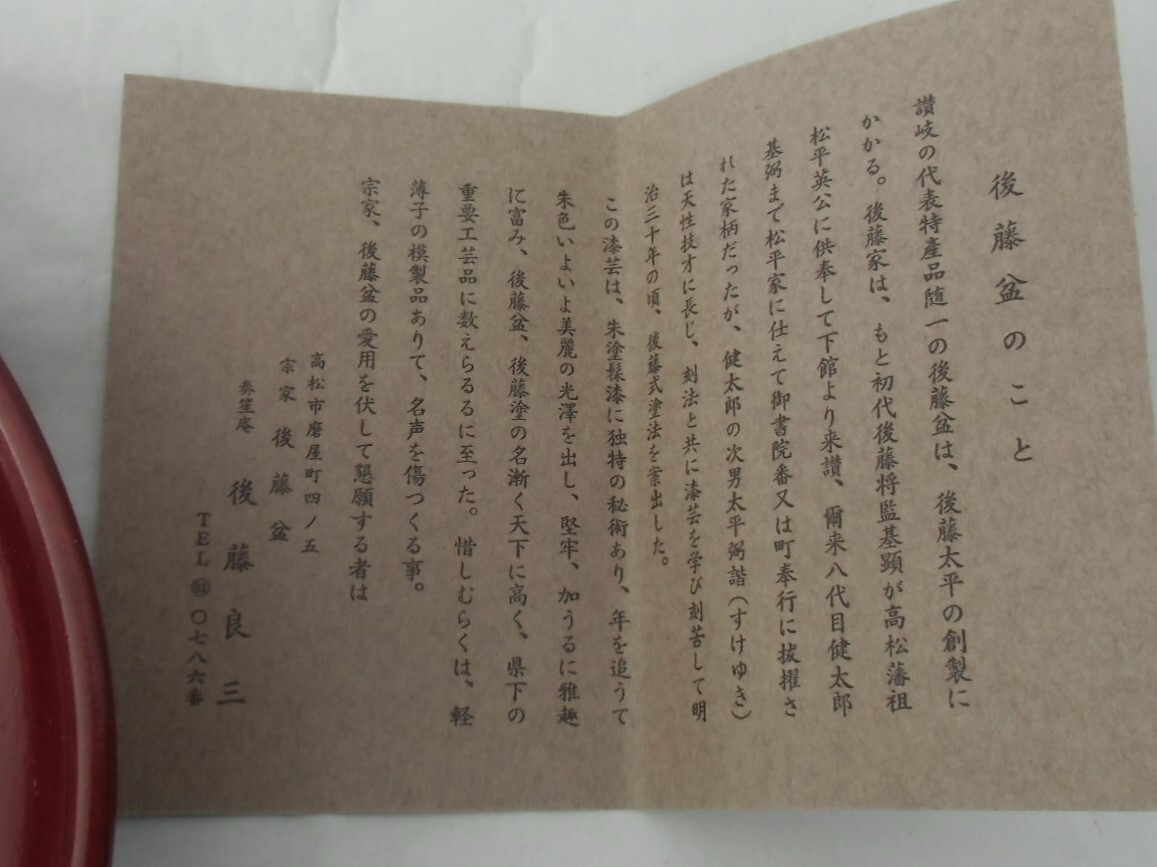 後藤盆のこと
讃岐の代表特產品随一の後藤盆は、後藤太平の創製に
かかる。後藤家は、もと初代後藤将監基顕が高松藩祖
松平英公に供奉して下館より来讃、爾来八代目健太郎
基弼まで松平家に仕えて御書院番又は町奉行に抜擢さ
れた家柄だったが、健太郎の次男太平弼諧(すけゆき)
は天性技才に長じ、刻法と共に漆芸を学び刻苦して明
治三十年の頃、後藤式塗法を案出した。
この漆芸は、朱塗髹漆に独特の秘術あり、年を追うて
朱色いよいよ美麗の光澤を出し、堅牢、加うるに雅趣
に富み、後藤盆、後藤塗の名漸く天下に高く、県下の
重要工芸品に数えらるるに至った。惜しむらくは、軽
薄子の模製品ありて、名声を傷つくる事。
宗家、後藤盆の愛用を伏して懇願する者は
高松市磨屋町四ノ五
宗家 後藤盆
奏笙庵 後藤良三
TEL ○七八六番